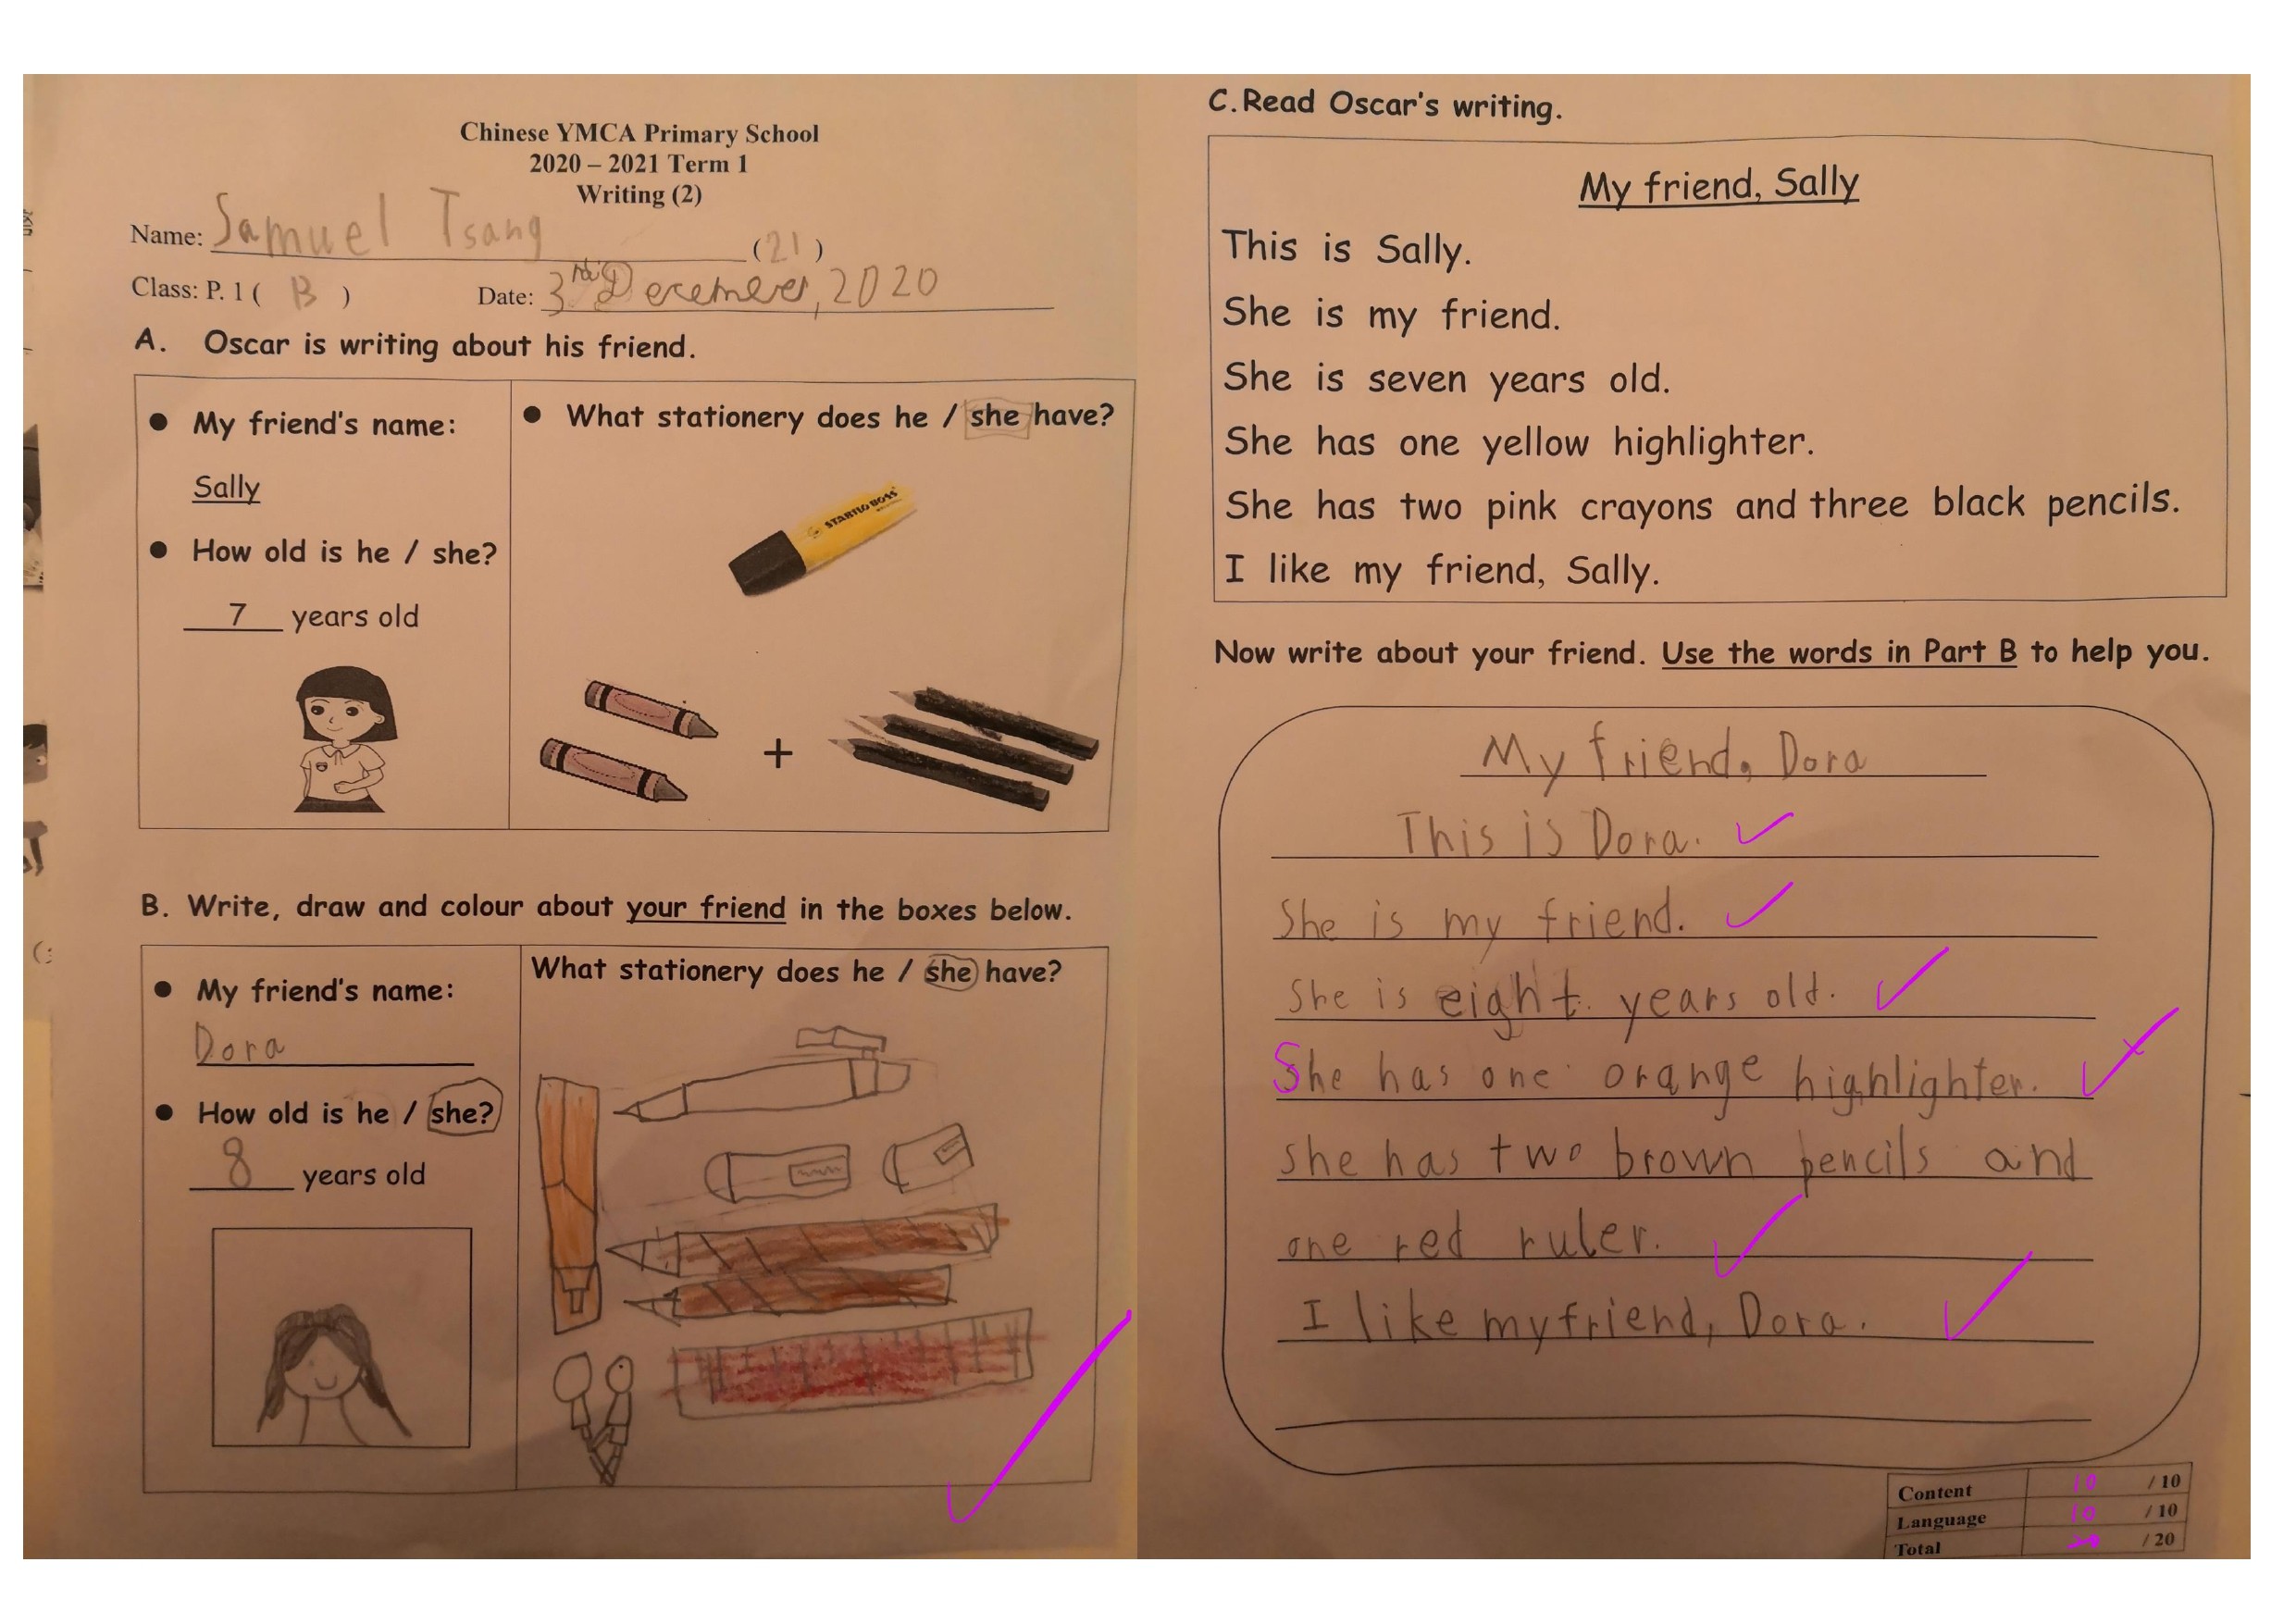 Chinese YMCA Primary School
2020 – 2021 Term 1
Writing (2)
Name: Samuel Tsang (21)
Class: P. 1 ( B ) Date: 3rd December, 2020
A. Oscar is writing about his friend.
My friend's name:
Sally
How old is he / she?
7 years old
What stationery does he / she have?
STABILO BOSS
+
B. Write, draw and colour about your friend in the boxes below.
My friend's name:
Dora
How old is he / she?
8 years old
What stationery does he / she have?
C. Read Oscar's writing.
My friend, Sally
This is Sally.
She is my friend.
She is seven years old.
She has one yellow highlighter.
She has two pink crayons and three black pencils.
I like my friend, Sally.
Now write about your friend. Use the words in Part B to help you.
My friend, Dora
This is Dora.
She is my friend.
She is eight years old.
She has one orange highlighter.
she has two brown pencils and
one red ruler.
I like my friend, Dora.
Content 10 / 10
Language 10 / 10
Total 20 / 20